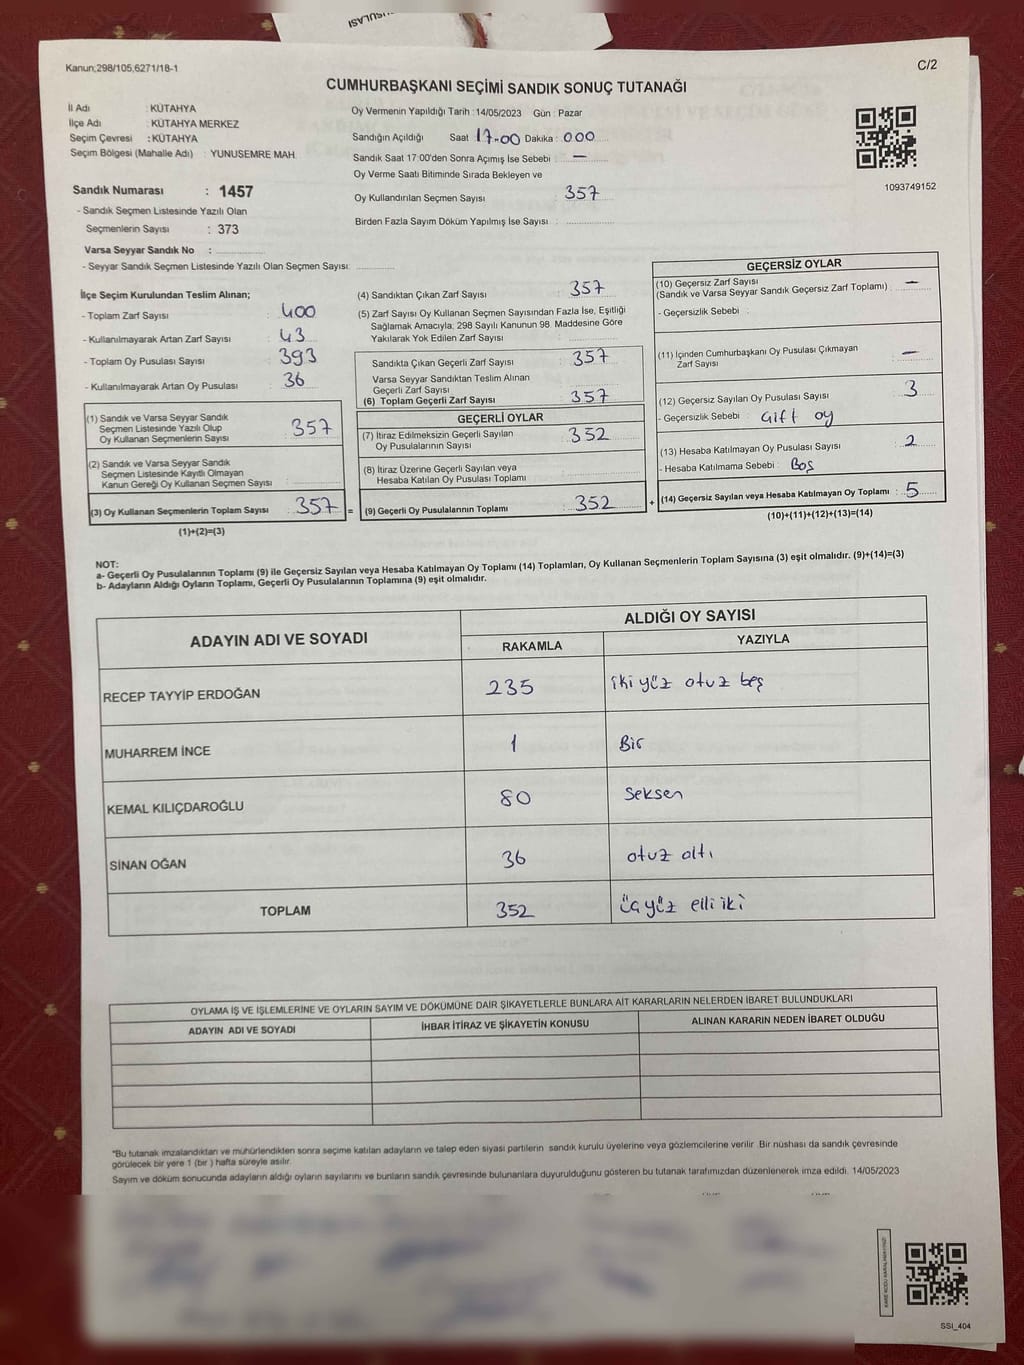 Kanun;298/105,6271/18-1
C/2
CUMHURBAŞKANI SEÇİMİ SANDIK SONUÇ TUTANAĞI
İl Adı : KÜTAHYA
İlçe Adı : KÜTAHYA MERKEZ
Seçim Çevresi : KÜTAHYA
Seçim Bölgesi (Mahalle Adı) : YUNUSEMRE MAH.
Sandık Numarası : 1457
- Sandık Seçmen Listesinde Yazılı Olan
Seçmenlerin Sayısı : 373
Varsa Seyyar Sandık No :
- Seyyar Sandık Seçmen Listesinde Yazılı Olan Seçmen Sayısı:
Oy Vermenin Yapıldığı Tarih : 14/05/2023 Gün : Pazar
Sandığın Açıldığı Saat 17.00 Dakika : 000
Sandık Saat 17:00'den Sonra Açımış İse Sebebi : —
Oy Verme Saati Bitiminde Sırada Bekleyen ve
Oy Kullandırılan Seçmen Sayısı : 357
Birden Fazla Sayım Döküm Yapılmış İse Sayısı :
1093749152
İlçe Seçim Kurulundan Teslim Alınan;
- Toplam Zarf Sayısı : 400
- Kullanılmayarak Artan Zarf Sayısı : 43
- Toplam Oy Pusulası Sayısı : 393
- Kullanılmayarak Artan Oy Pusulası : 36
(1) Sandık ve Varsa Seyyar Sandık
Seçmen Listesinde Yazılı Olup
Oy Kullanan Seçmenlerin Sayısı : 357
(2) Sandık ve Varsa Seyyar Sandık
Seçmen Listesinde Kayıtlı Olmayan
Kanun Gereği Oy Kullanan Seçmen Sayısı :
(3) Oy Kullanan Seçmenlerin Toplam Sayısı : 357 =
(1)+(2)=(3)
(4) Sandıktan Çıkan Zarf Sayısı : 357
(5) Zarf Sayısı Oy Kullanan Seçmen Sayısından Fazla İse, Eşitliği
Sağlamak Amacıyla; 298 Sayılı Kanunun 98. Maddesine Göre
Yakılarak Yok Edilen Zarf Sayısı :
Sandıkta Çıkan Geçerli Zarf Sayısı : 357
Varsa Seyyar Sandıktan Teslim Alınan
Geçerli Zarf Sayısı :
(6) Toplam Geçerli Zarf Sayısı : 357
GEÇERLİ OYLAR
(7) İtiraz Edilmeksizin Geçerli Sayılan
Oy Pusulalarının Sayısı : 352
(8) İtiraz Üzerine Geçerli Sayılan veya
Hesaba Katılan Oy Pusulası Toplamı :
(9) Geçerli Oy Pusulalarının Toplamı : 352 +
GEÇERSİZ OYLAR
(10) Geçersiz Zarf Sayısı
(Sandık ve Varsa Seyyar Sandık Geçersiz Zarf Toplamı) : —
- Geçersizlik Sebebi :
(11) İçinden Cumhurbaşkanı Oy Pusulası Çıkmayan
Zarf Sayısı : —
(12) Geçersiz Sayılan Oy Pusulası Sayısı : 3
- Geçersizlik Sebebi : Gift oy
(13) Hesaba Katılmayan Oy Pusulası Sayısı : 2
- Hesaba Katılmama Sebebi : Boş
(14) Geçersiz Sayılan veya Hesaba Katılmayan Oy Toplamı : 5
(10)+(11)+(12)+(13)=(14)
NOT:
a- Geçerli Oy Pusulalarının Toplamı (9) ile Geçersiz Sayılan veya Hesaba Katılmayan Oy Toplamı (14) Toplamları, Oy Kullanan Seçmenlerin Toplam Sayısına (3) eşit olmalıdır. (9)+(14)=(3)
b- Adayların Aldığı Oyların Toplamı, Geçerli Oy Pusulalarının Toplamına (9) eşit olmalıdır.
ADAYIN ADI VE SOYADI
ALDIĞI OY SAYISI
RAKAMLA YAZIYLA
RECEP TAYYİP ERDOĞAN 235 iki yüz otuz beş
MUHARREM İNCE 1 Bir
KEMAL KILIÇDAROĞLU 80 Seksen
SİNAN OĞAN 36 otuz altı
TOPLAM 352 üçyüz elli iki
OYLAMA İŞ VE İŞLEMLERİNE VE OYLARIN SAYIM VE DÖKÜMÜNE DAİR ŞİKAYETLERLE BUNLARA AİT KARARLARIN NELERDEN İBARET BULUNDUKLARI
ADAYIN ADI VE SOYADI İHBAR İTİRAZ VE ŞİKAYETİN KONUSU ALINAN KARARIN NEDEN İBARET OLDUĞU
*Bu tutanak imzalandıktan ve mühürlendikten sonra seçime katılan adayların ve talep eden siyasi partilerin sandık kurulu üyelerine veya gözlemcilerine verilir. Bir nüshası da sandık çevresinde
görülecek bir yere 1 (bir ) hafta süreyle asılır.
Sayım ve döküm sonucunda adayların aldığı oyların sayılarını ve bunların sandık çevresinde bulunanlara duyurulduğunu gösteren bu tutanak tarafımızdan düzenlenerek imza edildi. 14/05/2023
SSI_404